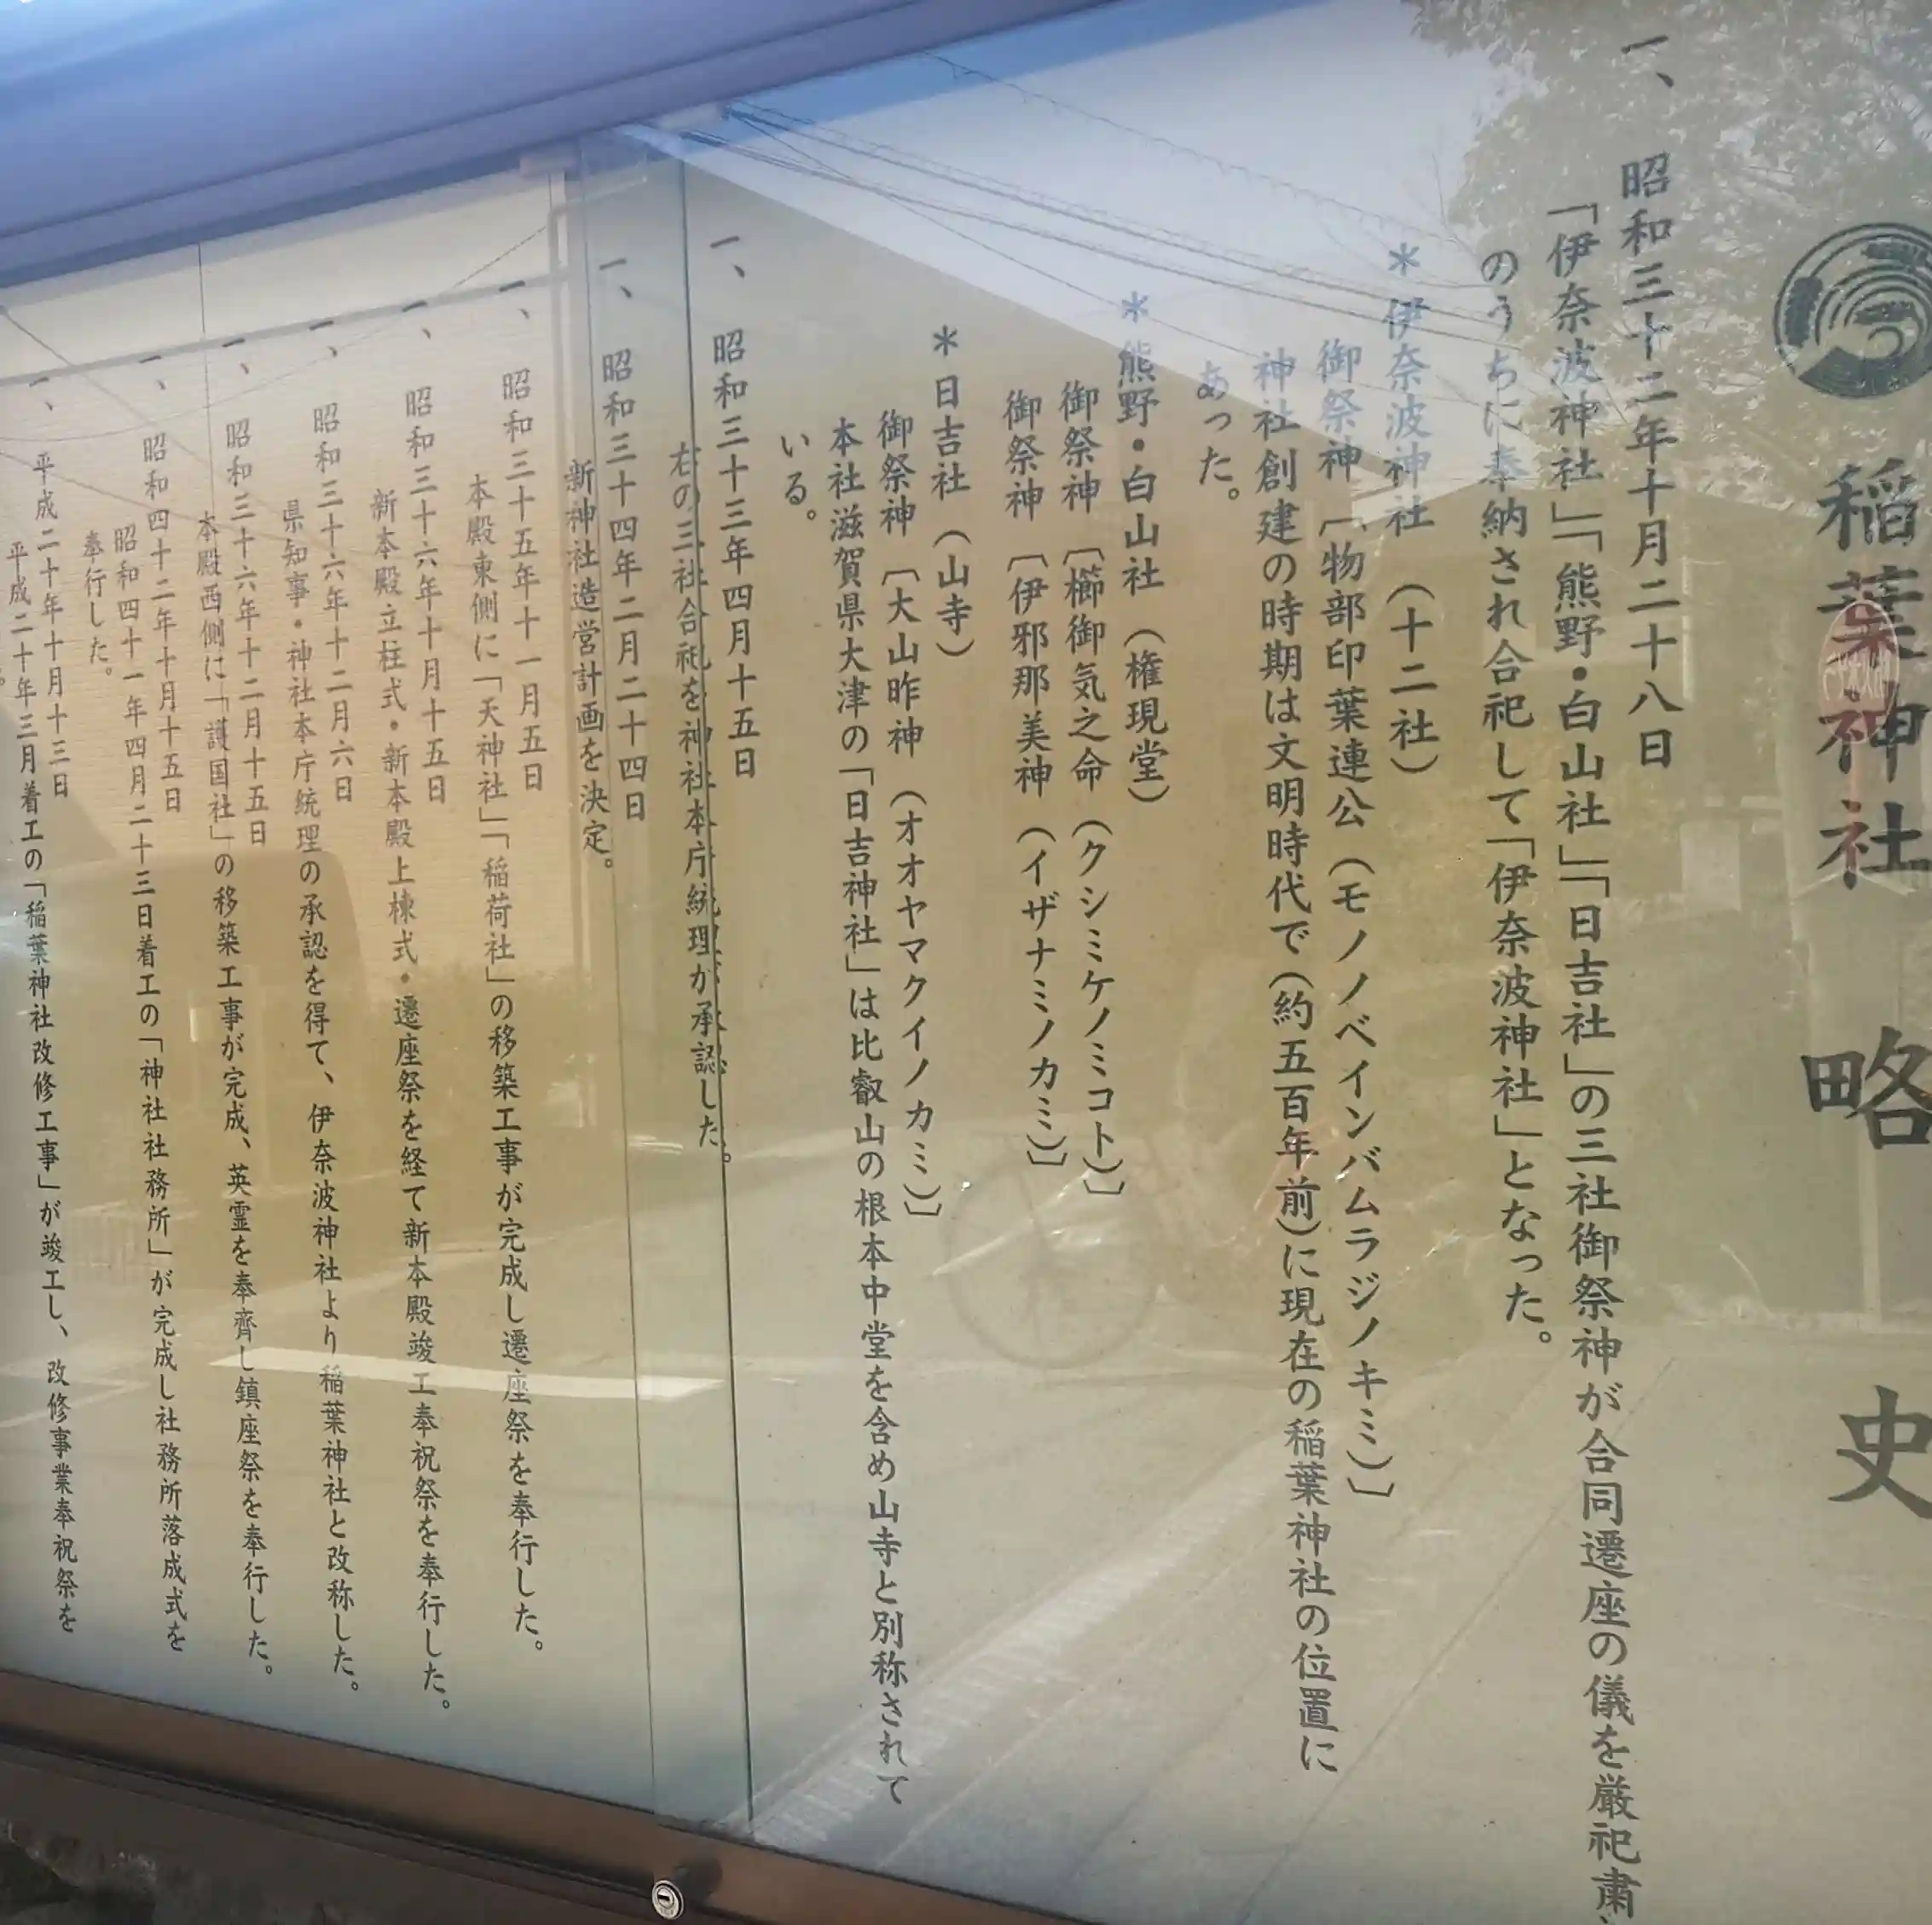 稲葉神社略史
一、昭和三十二年十月二十八日
「伊奈波神社」「熊野・白山社」「日吉社」の三社御祭神が合同遷座の儀を厳祀粛
のうちに奉納され合祀して「伊奈波神社」となった。
＊伊奈波神社（十二社）
御祭神〔物部印葉連公（モノノベインバムラジノキミ）〕
神社創建の時期は文明時代で（約五百年前）に現在の稲葉神社の位置に
あった。
＊熊野・白山社（権現堂）
御祭神〔櫛御気之命（クシミケノミコト）〕
御祭神〔伊邪那美神（イザナミノカミ）〕
＊日吉社（山寺）
御祭神〔大山昨神（オオヤマクイノカミ）〕
本社滋賀県大津の「日吉神社」は比叡山の根本中堂を含め山寺と別称されて
いる。
一、昭和三十三年四月十五日
右の三社合祀を神社本庁統理が承認した。
一、昭和三十四年二月二十四日
新神社造営計画を決定。
一、昭和三十五年十一月五日
本殿東側に「天神社」「稲荷社」の移築工事が完成し遷座祭を奉行した。
一、昭和三十六年十月十五日
新本殿立柱式・新本殿上棟式・遷座祭を経て新本殿竣工奉祝祭を奉行した。
一、昭和三十六年十二月六日
県知事・神社本庁統理の承認を得て、伊奈波神社より稲葉神社と改称した。
一、昭和三十六年十二月十五日
本殿西側に「護国社」の移築工事が完成、英霊を奉齊し鎮座祭を奉行した。
一、昭和四十二年十月十五日
昭和四十一年四月二十三日着工の「神社社務所」が完成し社務所落成式を
奉行した。
一、平成二十年十月十三日
平成二十年三月着工の「稲葉神社改修工事」が竣工し、改修事業奉祝祭を